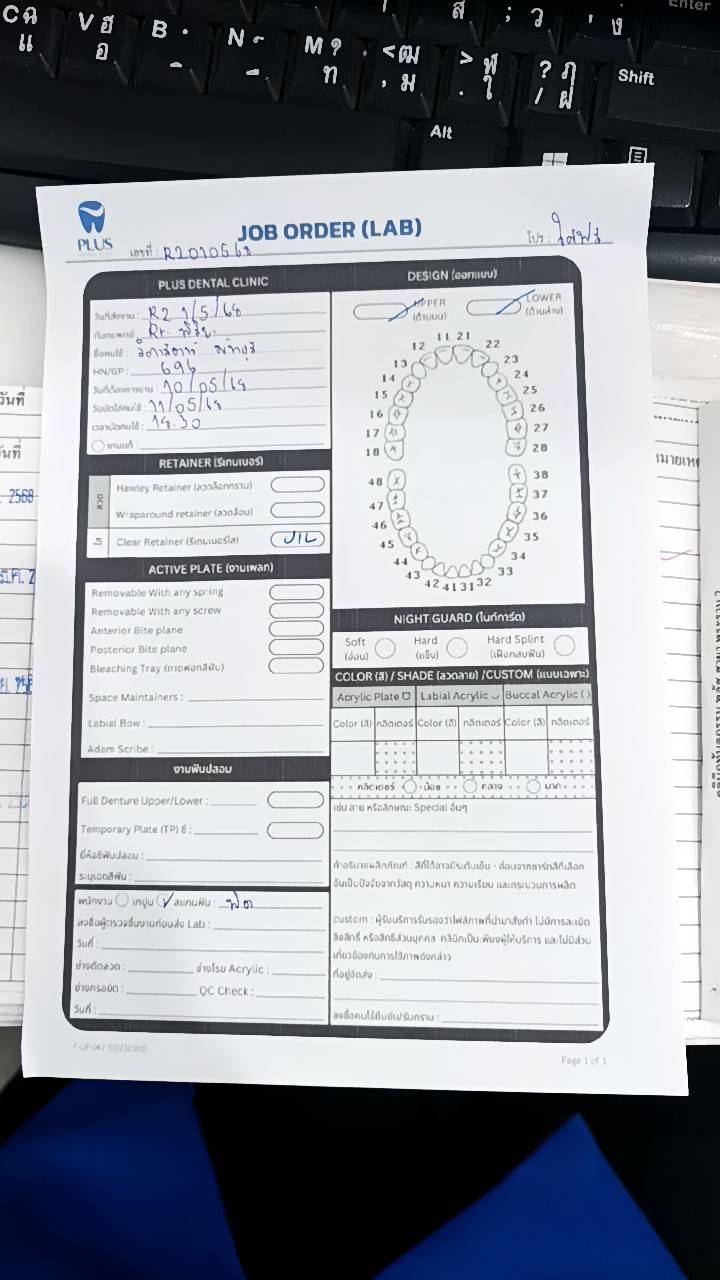 Cฉ
แ
Vฮ
อ
B ฺ
N ์
M ?
ท
< ฒ
, ม
> ฬ
. ใ
? ฦ
/ ฝ
ส
; ว
' ง
Enter
Shift
Alt
PLUS
JOB ORDER (LAB)
เลขที่ : R2010568
โปร :
PLUS DENTAL CLINIC
วันที่ส่งงาน : R2 1/5/68
ทันตแพทย์ :
ชื่อคนไข้ :
HN/GP : 696
วันที่ต้องการงาน : 10/05/68
วันนัดใส่คนไข้ : 11/05/68
เวลานัดคนไข้ : 14.30
งานแก้ :
RETAINER (รีเทนเนอร์)
ลวด
Hawley Retainer (ลวดล็อกกราม)
Wraparound retainer (ลวดล้อม)
ใส
Clear Retainer (รีเทนเนอร์ใส) U/L
ACTIVE PLATE (งานเพลท)
Removable With any spring
Removable With any screw
Anterior Bite plane
Posterior Bite plane
Bleaching Tray (ถาดฟอกสีฟัน)
Space Maintainers :
Labial Bow :
Adam Scribe :
งานฟันปลอม
Full Denture Upper/Lower :
Temporary Plate (TP) ซี่ :
ยี่ห้อซี่ฟันปลอม :
ระบุเฉดสีฟัน :
พนักงาน เทปูน สแกนฟัน :
ลงชื่อผู้ตรวจชิ้นงานก่อนส่ง Lab :
วันที่ :
ช่างดัดลวด : ช่างโรย Acrylic :
ช่างกรอขัด : QC Check :
วันที่ :
DESIGN (ออกแบบ)
UPPER
(ด้านบน)
LOWER
(ด้านล่าง)
11 21
12 22
13 23
14 24
15 25
16 26
17 27
18 28
48 38
47 37
46 36
45 35
44 34
43 33
42 41 31 32
NIGHT GUARD (ไนท์การ์ด)
Soft
(อ่อน)
Hard
(แข็ง)
Hard Splint
(เฝือกสบฟัน)
COLOR (สี) / SHADE (ลวดลาย) /CUSTOM (แบบเฉพาะ)
Acrylic Plate Labial Acrylic Buccal Acrylic ( )
Color (สี) กลิตเตอร์ Color (สี) กลิตเตอร์ Color (สี) กลิตเตอร์
กลิตเตอร์ น้อย กลาง มาก
เช่น ลาย หรือลักษณะ Special อื่นๆ
คำอธิบายผลิตภัณฑ์ : สีที่ได้อาจมีระดับเข้ม - อ่อนจากชาร์ทสีที่เลือก
อันเป็นปัจจัยจากวัสดุ ความหนา ความเรียบ และกระบวนการผลิต
custom : ผู้รับบริการรับรองว่าไฟล์ภาพที่นำมาสั่งทำ ไม่มีการละเมิด
ลิขสิทธิ์ หรือสิทธิส่วนบุคคล คลินิกเป็นเพียงผู้ให้บริการ และไม่มีส่วน
เกี่ยวข้องกับการใช้ภาพดังกล่าว
ที่อยู่จัดส่ง :
ลงชื่อคนไข้ยืนยัน/รับทราบ :
Page 1 of 1
วันที่
2568
หมายเหตุ